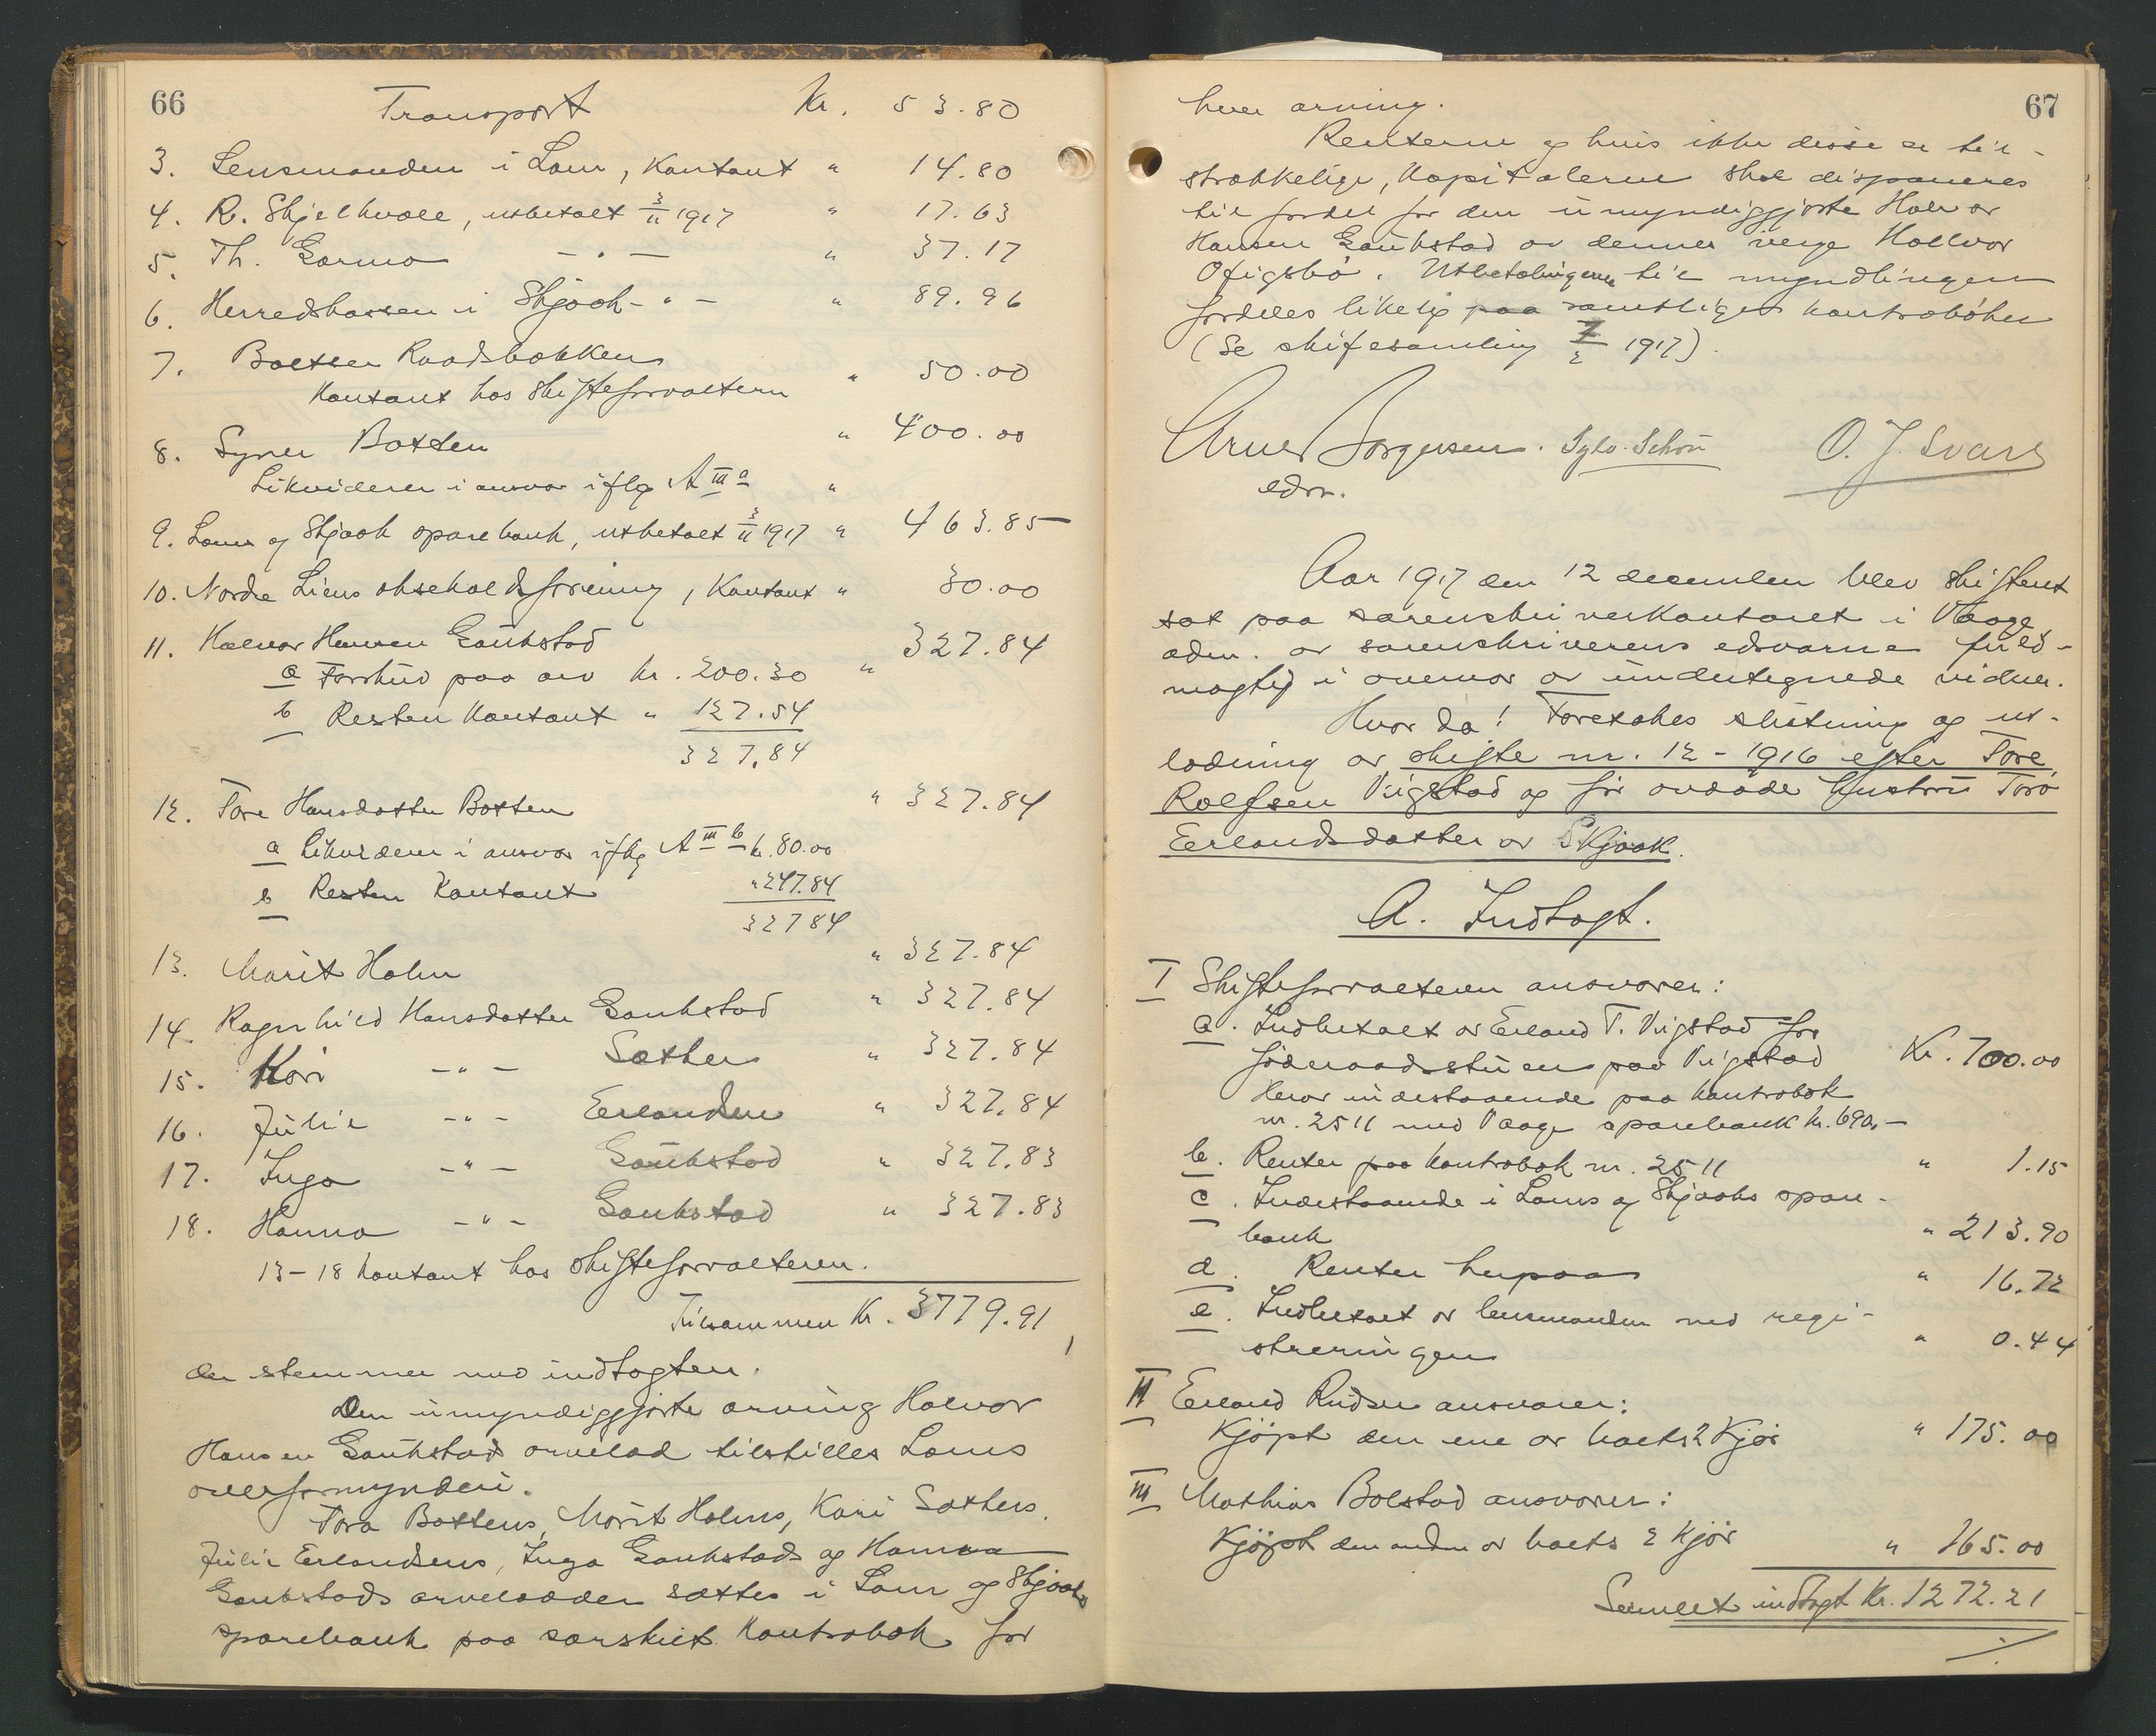 66
Transport Kr. 53.80
3. Lensmanden i Lom, kontant " 14.80
4. R. Skjelkvåle, utbetalt 3/11 1917 " 17.63
5. Th. Garmo - " - " 37.17
6. Herredskassen i Skjaak - " - " 89.96
7. Botten Raadsbakken
Kontant hos skifteforvalteren " 50.00
8. Syver Botten " 400.00
Likviderer i ansvar iflg A III a "
9. Lom og Skjaak sparebank, utbetalt 3/11 1917 " 463.85
10. Nordre Liens okseholdsforening, Kontant " 30.00
11. Halvor Hansen Gaukstad 327.84
a Forskud paa arv kr. 200.30 "
b Resten kontant " 127.54
327.84
12. Tore Hansdatter Botten " 327.84
a Likviderer i ansvar iflg A III b kr. 80.00
b Resten Kontant " 247.84
327 84
13. Marit Holm " 327.84
14. Ragnhild Hansdatter Gaukstad " 327.84
15. Kari - " - Sæther " 327.84
16. Julie - " - Erlandsen " 327.84
17. Inga - " - Gaukstad " 327.83
18. Hanna - " - Gaukstad " 327.83
13-18 kontant hos skifteforvalteren.
Tilsammen Kr. 3779.91
der stemmer med indtægten.
Den umyndiggjorte arving Halvor
Hansen Gaukstad arvelod tilstilles Loms
overformynderi.
Tora Bottens, Marit Holms, Kari Sæthers,
Julie Erlandsens, Inga Gaukstads og Hanna
Gaukstads arvelodder sættes i Lom og Skjaak
sparebank paa særskilt kontrabok for
67
hver arving.
Renterne og hvis ikke disse er til-
strækkelige, kapitalerne skal disponeres
til fordel for den umyndiggjorte Halvor
Hansen Gaukstad av dennes verge Halvor
Ofigsbø. Utbetalingerne til myndlingen
fordeles likelig paa samtlige kontrabøker
(Se skiftesamling 7/2 1917).
Arne Jørgensen. Sylv. Schou O. J. Svare
edsv.
Aar 1917 den 12 december blev skifteret
sat paa sorenskriverkontoret i Vaage
adm. av sorenskriverens edsvorne fuld-
mægtig i overvær av undertegnede vidner.
Hvor da! Foretokes slutning og ut-
lodning av skifte nr. 12 - 1916 efter Tore
Rolfsen Vigstad og før avdøde hustru Toro
Erlandsdatter av Skjaak.
A. Indtægt.
I Skifteforvalteren ansvarer:
a. Indbetalt av Erland T. Vigstad for
føderaadsstuen paa Vigstad Kr. 700.00
Herav indestaaende paa kontrabok
nr. 2511 med Vaage sparebank kr. 690,-
b. Renter paa kontrabok nr. 2511 " 1.15
c. Indestaaende i Loms og Skjaaks spare-
bank " 213.90
d. Renter herpaa " 16.72
e. Indbetalt av lensmanden ved regi-
streringen " 0.44
II Erland Rudser ansvarer:
Kjøpt den ene av boets 2 kjør " 175.00
III Mathias Bolstad ansvarer:
Kjøpt den anden av boets 2 kjør " 165.00
Samlet indtægt Kr. 1272.21